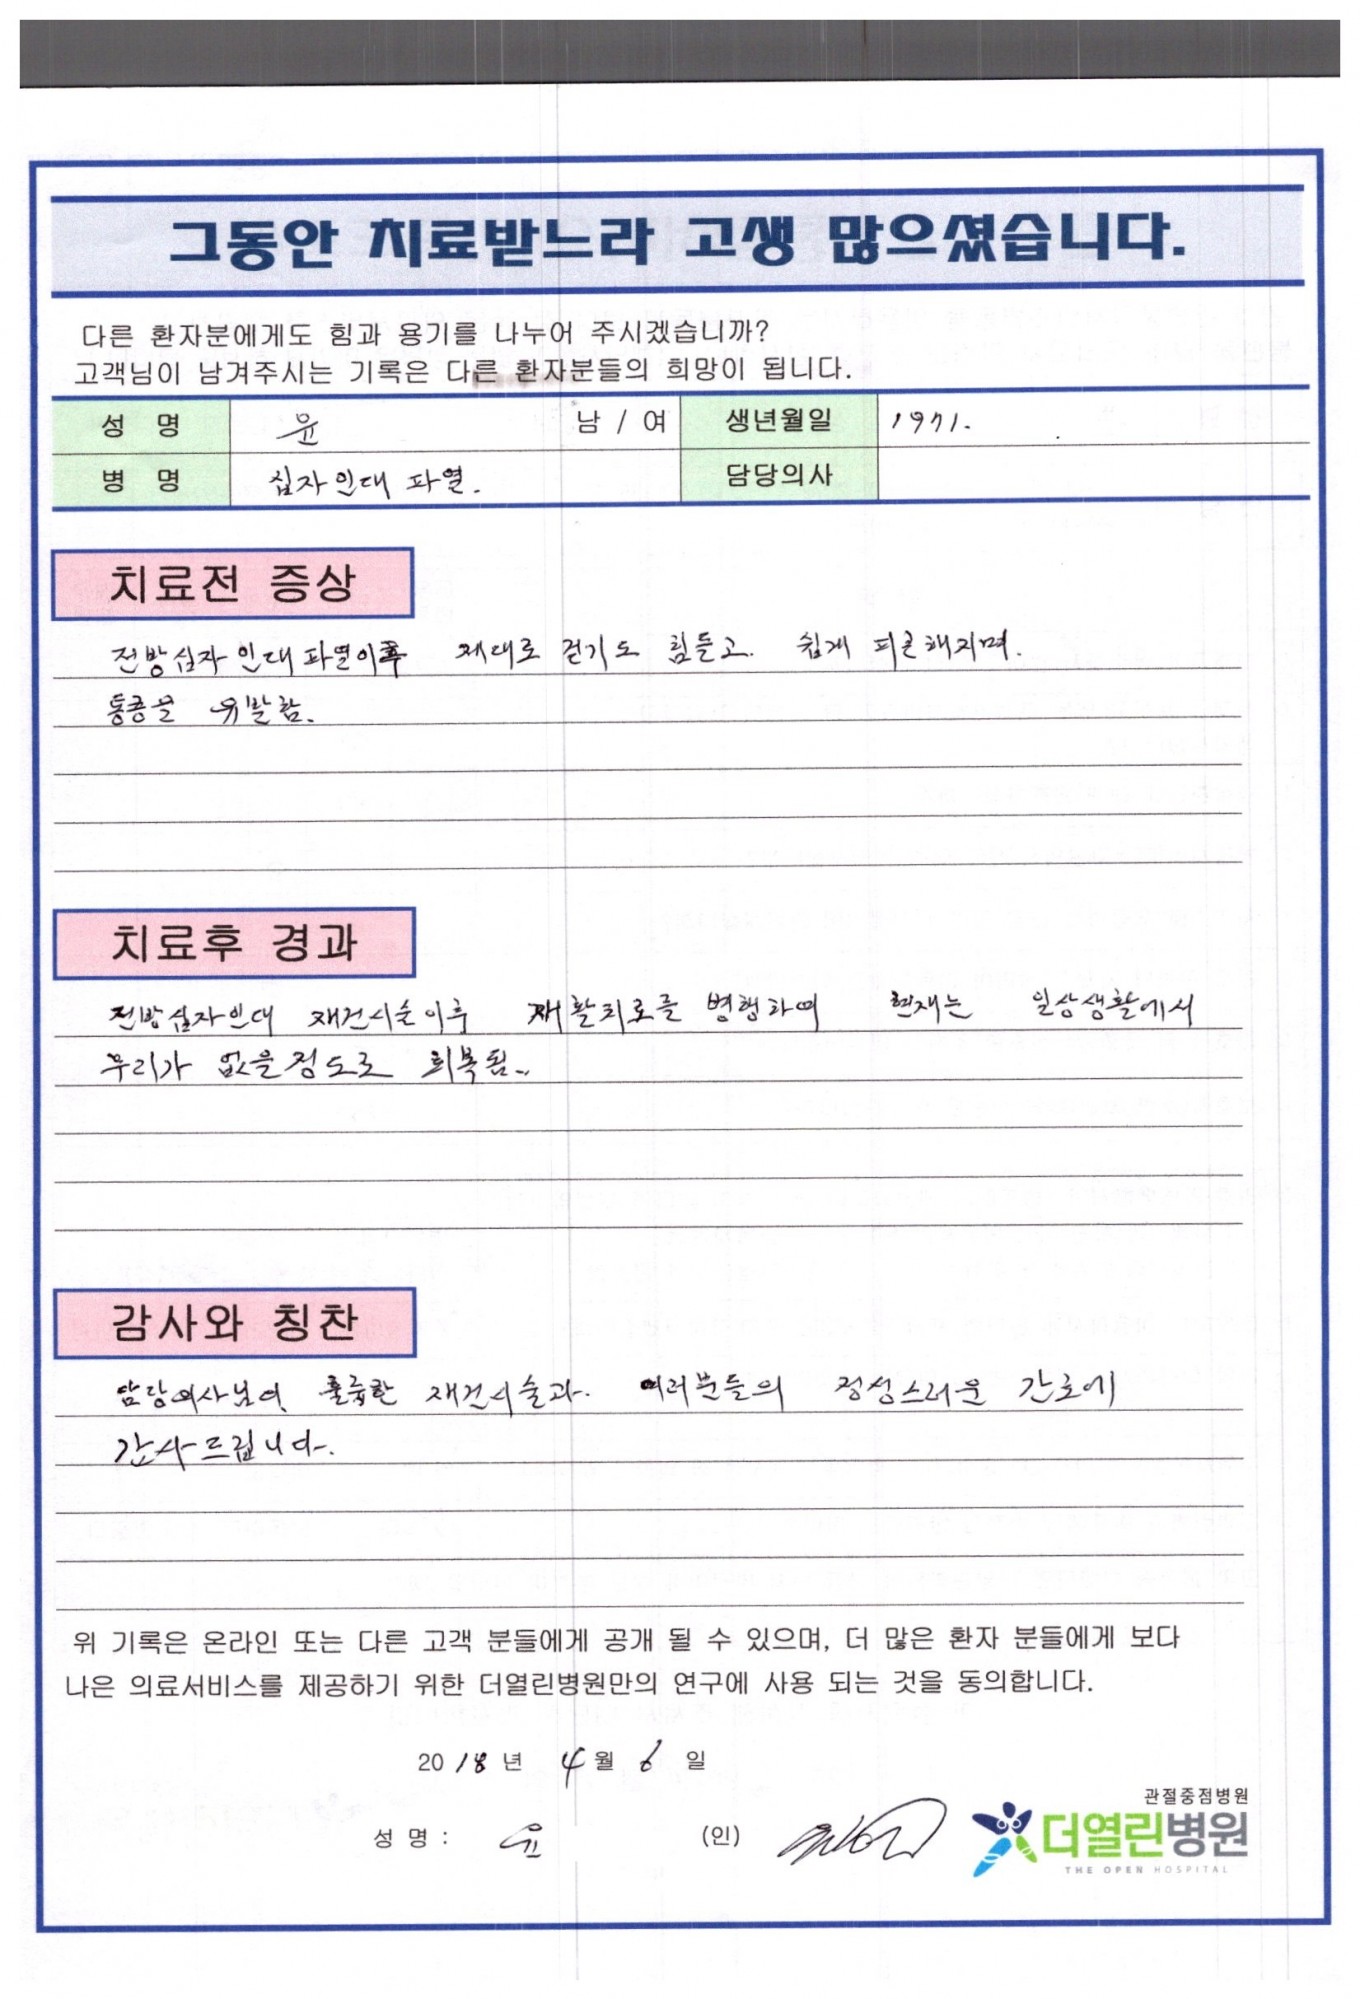 그동안 치료받느라 고생 많으셨습니다.
다른 환자분에게도 힘과 용기를 나누어 주시겠습니까?
고객님이 남겨주시는 기록은 다른 환자분들의 희망이 됩니다.
성 명 윤 남 / 여 생년월일 1971.
병 명 십자인대 파열. 담당의사
치료전 증상
전방십자인대파열이후 제대로 걷기도 힘들고. 쉽게 피곤해지며.
통증을 유발함.
치료후 경과
전방십자인대 재건시술이후 재활치료를 병행하며 현재는 일상생활에서
무리가 없을정도로 회복됨..
감사와 칭찬
담당의사님의 훌륭한 재건시술과. 여러분들의 정성스러운 간호에
감사드립니다.
위 기록은 온라인 또는 다른 고객 분들에게 공개 될 수 있으며, 더 많은 환자 분들에게 보다
나은 의료서비스를 제공하기 위한 더열린병원만의 연구에 사용 되는 것을 동의합니다.
2018년 4월 6일
성 명 : 윤 (인)
관절중점병원
더열린병원
THE OPEN HOSPITAL